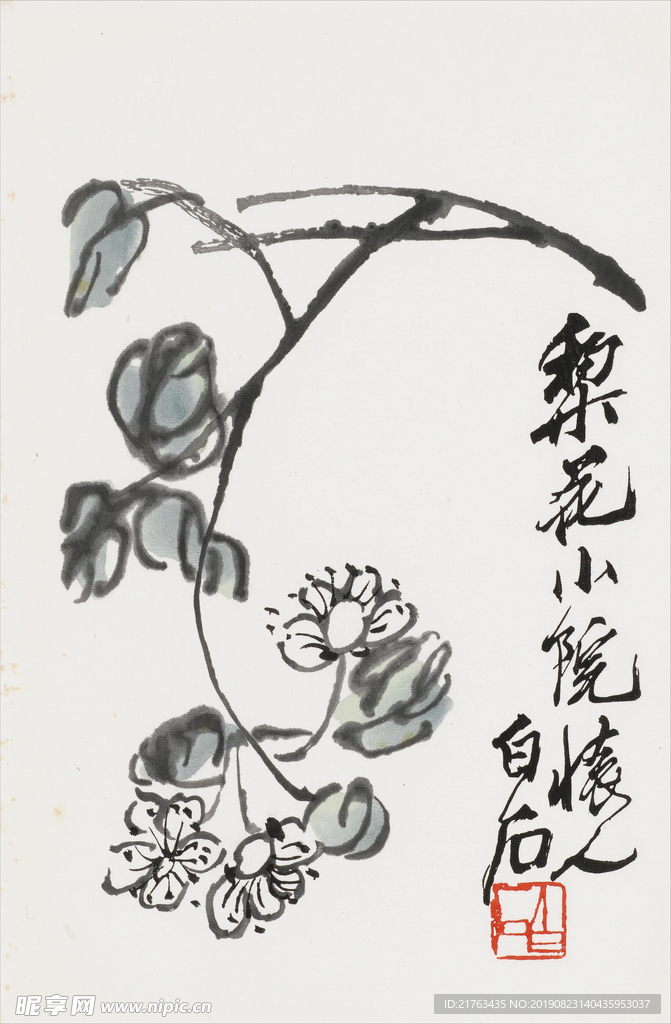 梨花小院懷人
白石
昵享网 www.nipic.cn
ID:21763435 NO:20190823140435953037